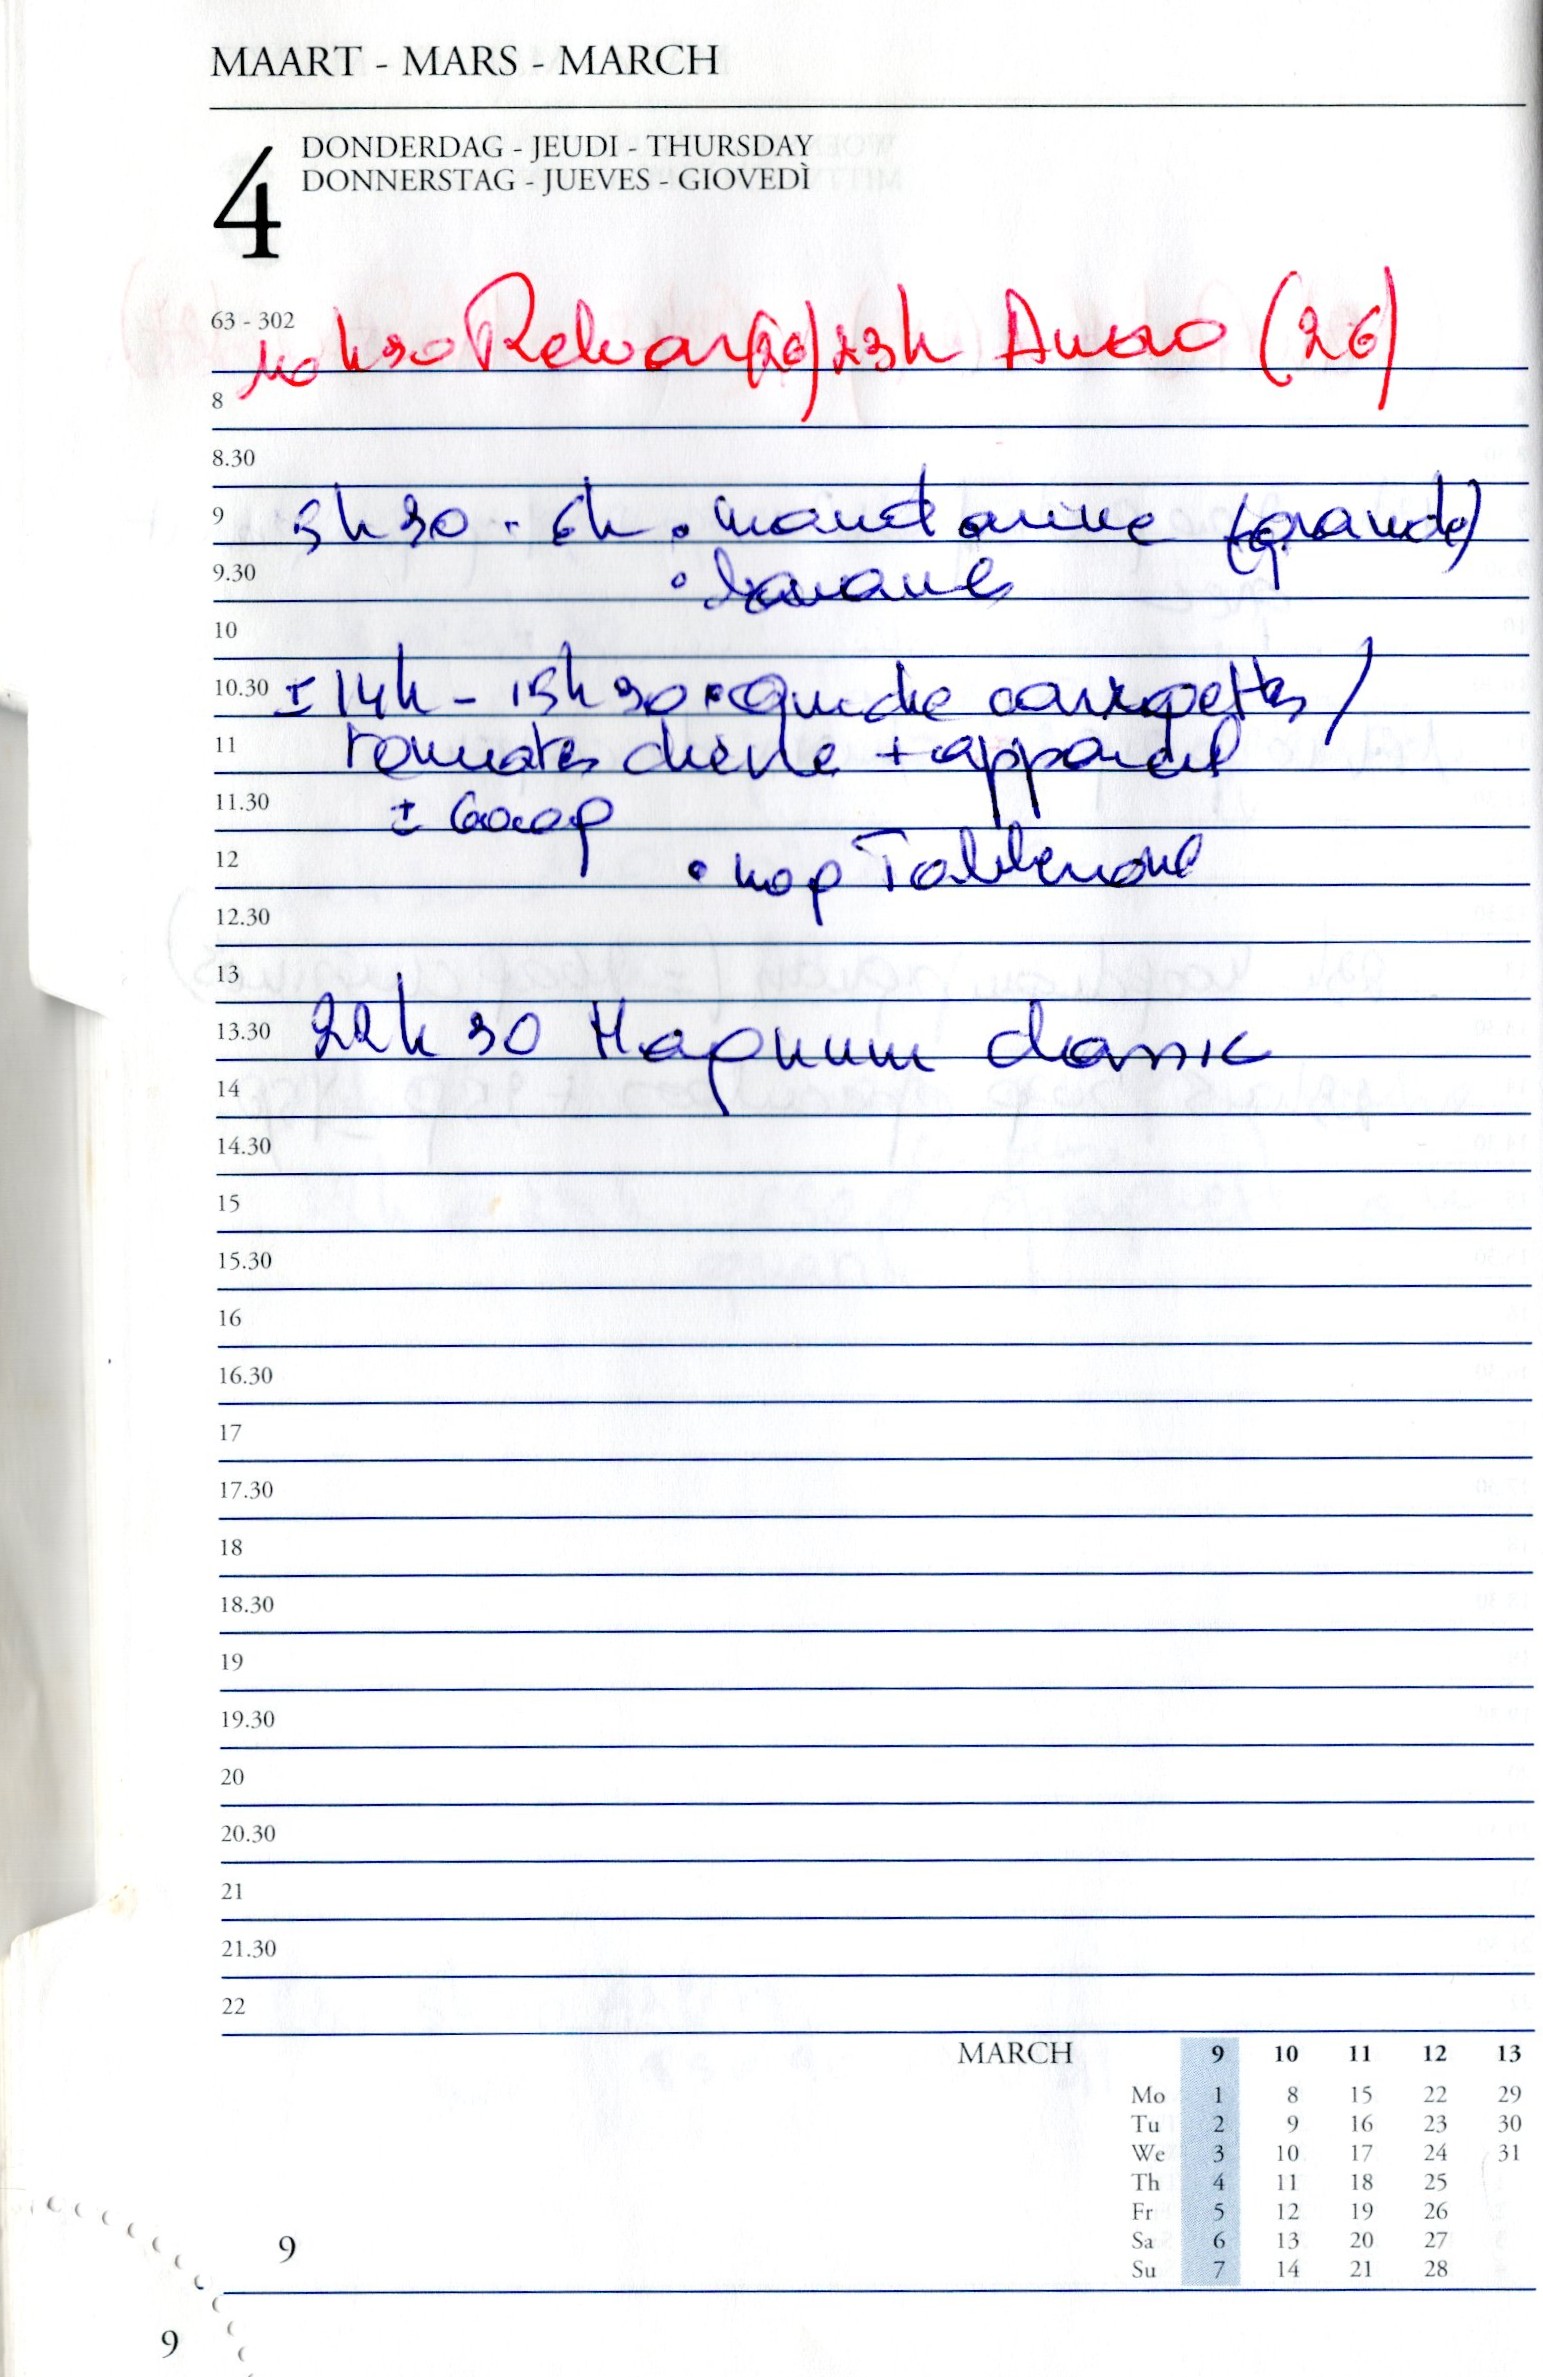 MAART - MARS - MARCH
4
DONDERDAG - JEUDI - THURSDAY
DONNERSTAG - JUEVES - GIOVEDÌ
63 - 302
h30 Relvar (26) 23h (26)
8
8.30
9 5h30 - 6h • mandarine (grande)
9.30 • banane
10
10.30 ± 14h - 15h30 • quiche courgettes /
11 tomates chèvre + appareil
11.30 ±
12 •
12.30
13
13.30 22h30 Magnum classic
14
14.30
15
15.30
16
16.30
17
17.30
18
18.30
19
19.30
20
20.30
21
21.30
22
MARCH 9 10 11 12 13
Mo 1 8 15 22 29
Tu 2 9 16 23 30
We 3 10 17 24 31
Th 4 11 18 25
Fr 5 12 19 26
Sa 6 13 20 27
Su 7 14 21 28
9
9